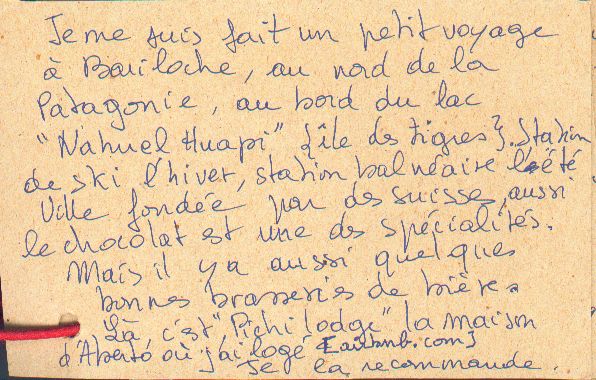 Je me suis fait un petit voyage
à Bariloche, au nord de la
Patagonie, au bord du lac
"Nahuel Huapi" {île des tigres}. Station
de ski l'hiver, station balnéaire l'été
Ville fondée par des suisses, aussi
le chocolat est une des spécialités.
Mais il y a aussi quelques
bonnes brasseries de bière.
Là, c'est "Pichi lodge" la maison
d'Aberto où j'ai logé [airbnb.com]
Je la recommande.